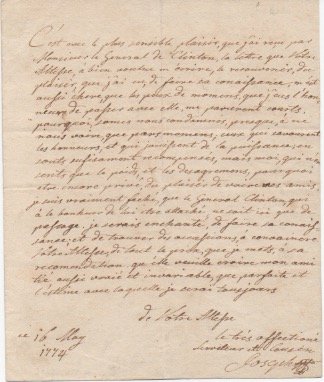 C'est avec le plus sensible plaisir, que j'ai reçu par
Monsieur le General de Clinton, la lettre que Votre
Altesse, a bien voulue m'ecrire, le souvenir, du
plaisir, que j'ai eu, de faire sa conaissance, m'est
aussi chere, que les peu de momens, que j'eus l'hon-
neur de passer avec elle, me parurent courts.
pourquoi, somes nous condamnés, presque, a ne
nous voire, que par momens, ceux qui savourent
les honneurs, et qui jouissent de la puissance, en
sonts sufisament recompensés, mais moi, qui ne
sents que le poids, et les desagremens, pourquoi
etre encore privé, du plaisir de voire ses amis,
je suis vraiment faché, que le General Clinton, qui
a le bonheur de lui etre attaché, ne soit ici que de
passage, je serais enchanté, de faire sa conais
sance, et de trouver des occasions, a convaincre
Votre Altesse, du cas que je mets, a sa
recomendation, qu'elle veuille croire mon ami
tié, aussi vraie et invariable, que parfaite est
l'estime avec laquelle je serai toujours
de Votre Altesse
ce 16 May
1774
le très affectioné
Joseph